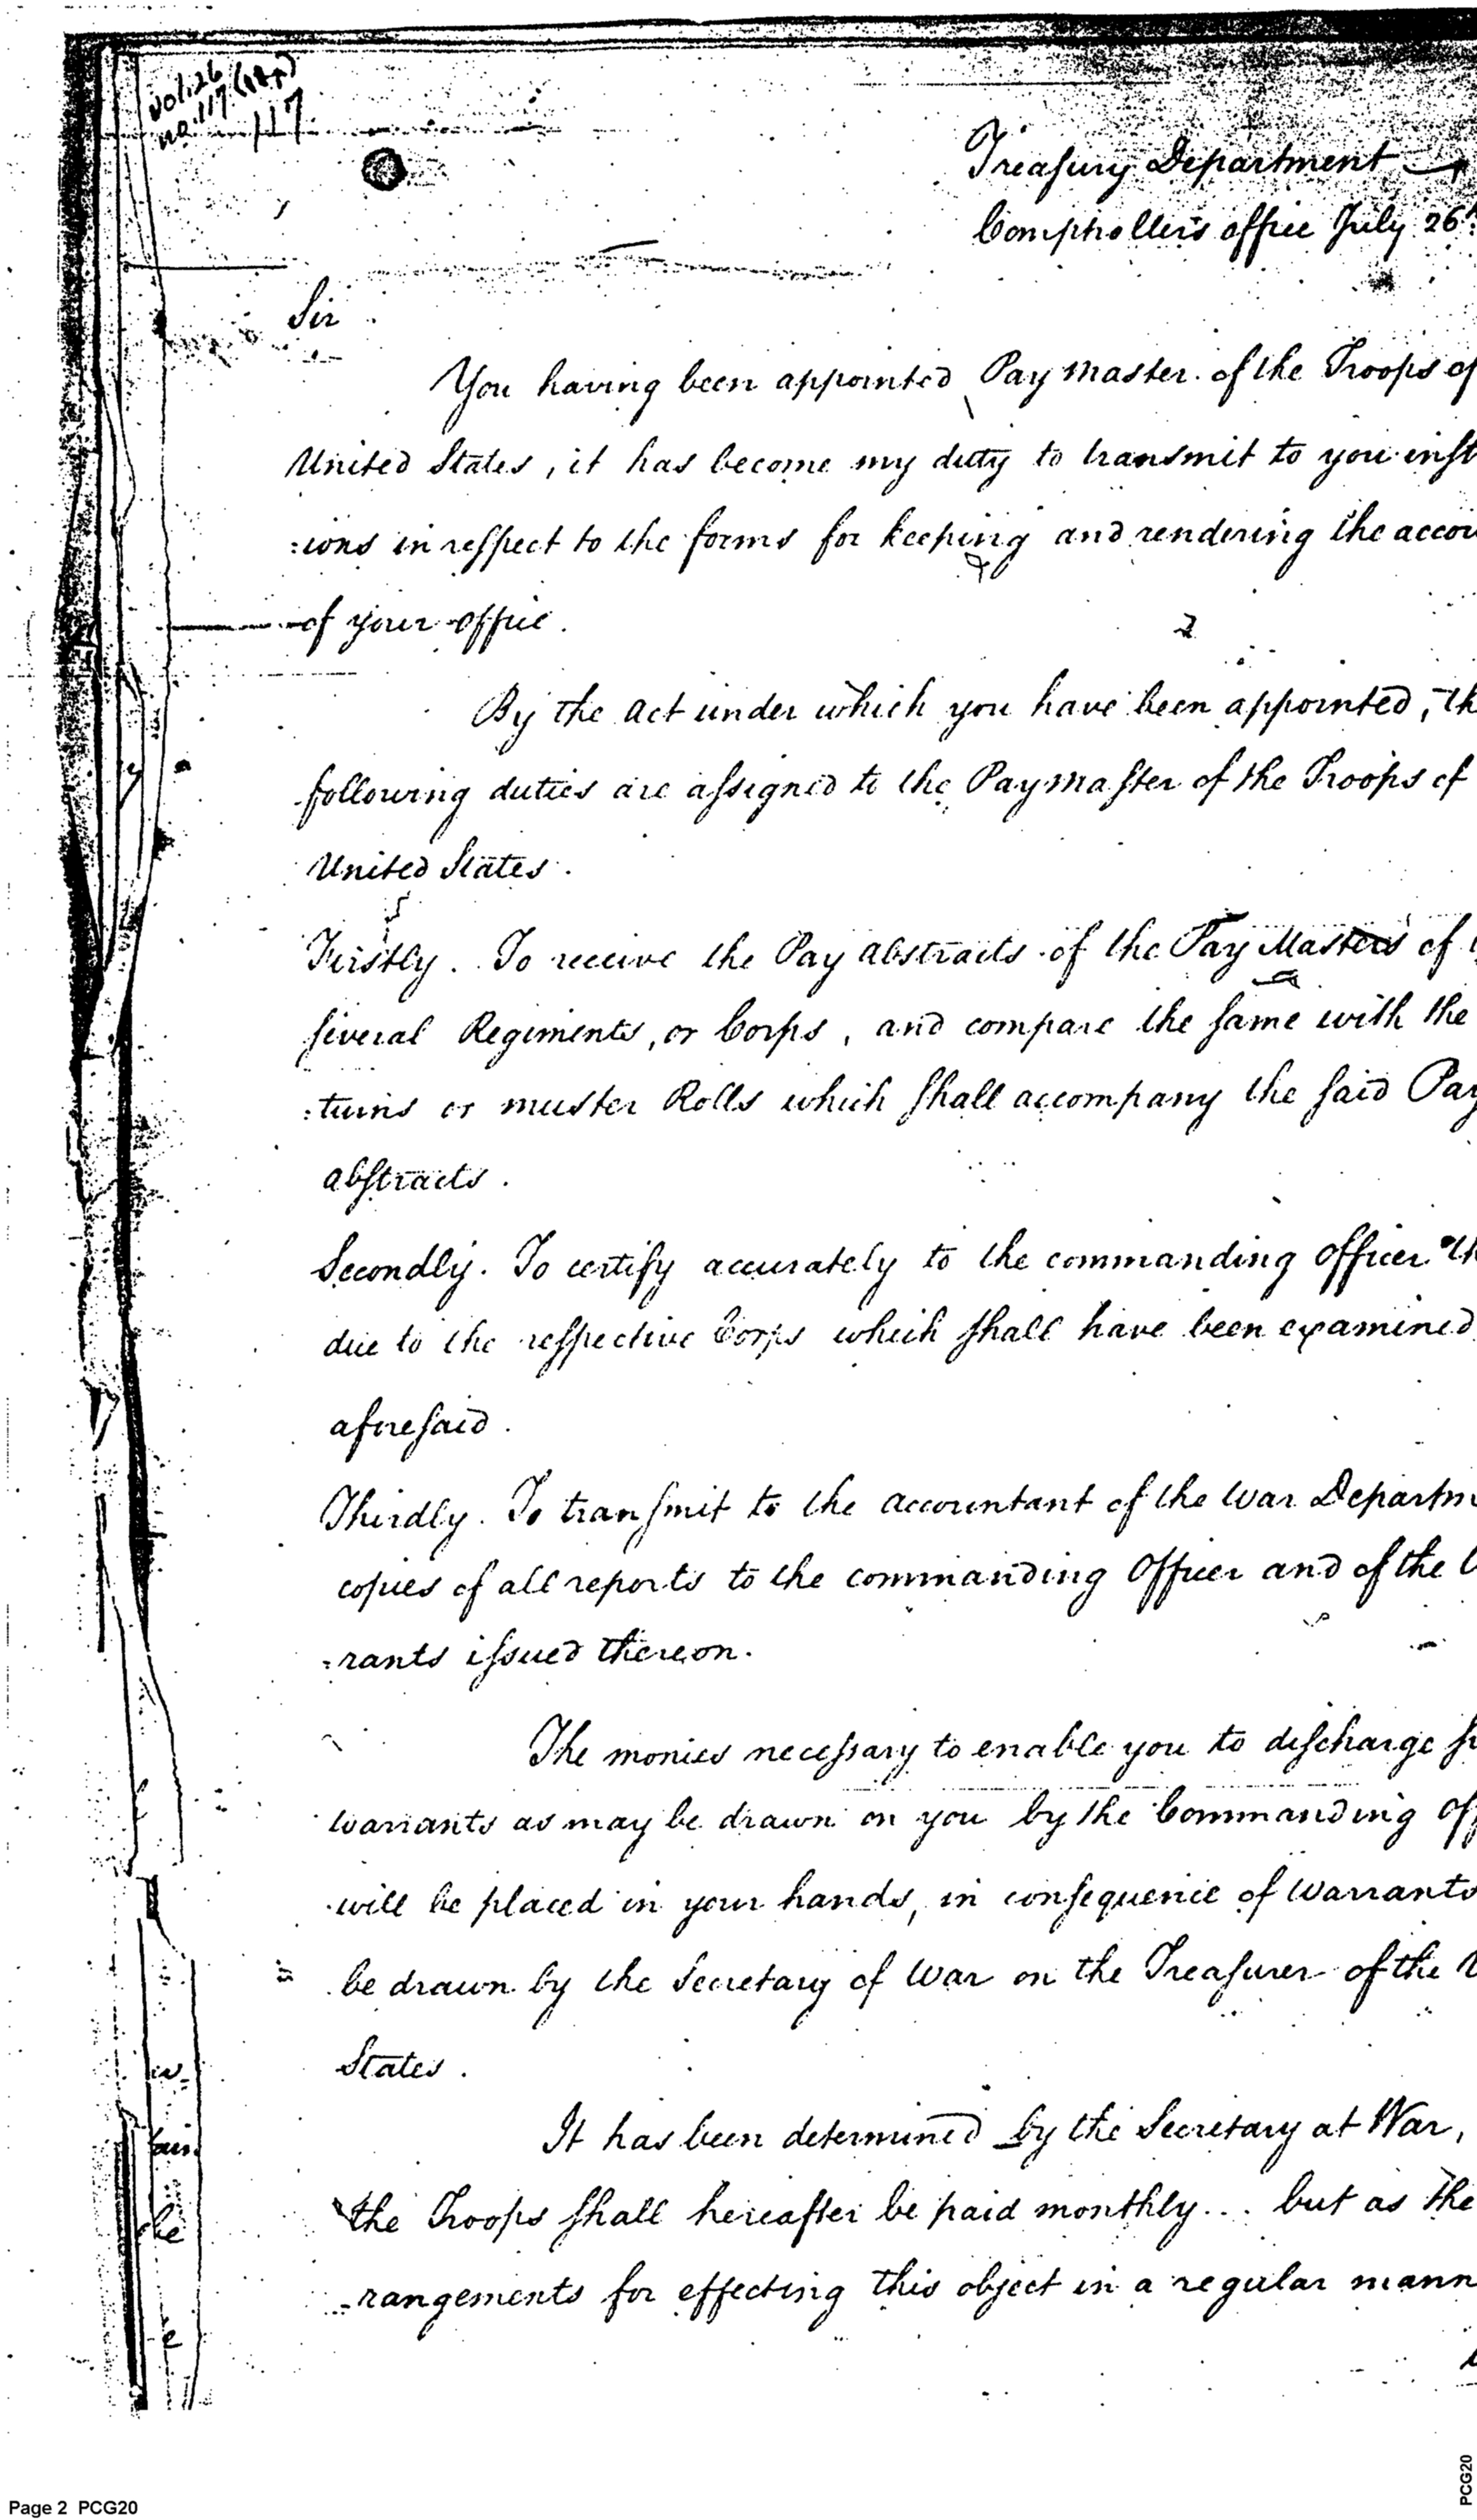 vol. 26
no. 117
117
Treasury Department
Comptrollers office July 26
Sir
You having been appointed Pay Master of the Troops of
United States, it has become my duty to transmit to you inst
:ions in respect to the forms for keeping and rendering the accou
of your office.
By the act under which you have been appointed, th
following duties are assigned to the Paymaster of the Troops of
United States.
Firstly. To receive the Pay abstracts of the Pay Masters of
several Regiments, or Corps, and compare the same with the
:turns or muster Rolls which shall accompany the said Pay
abstracts.
Secondly. To certify accurately to the commanding officer th
due to the respective Corps which shall have been examined
aforesaid.
Thirdly. To transmit to the accountant of the War Departm
copies of all reports to the commanding Officer and of the
:rants issued thereon.
The monies necessary to enable you to discharge su
warrants as may be drawn on you by the Commanding Off
will be placed in your hands, in consequence of Warrants
be drawn by the Secretary of War on the Treasurer of the U
States.
It has been determined by the Secretary at War,
the Troops shall hereafter be paid monthly... but as the
-rangements for effecting this object in a regular mann
Page 2 PCG20
PCG20